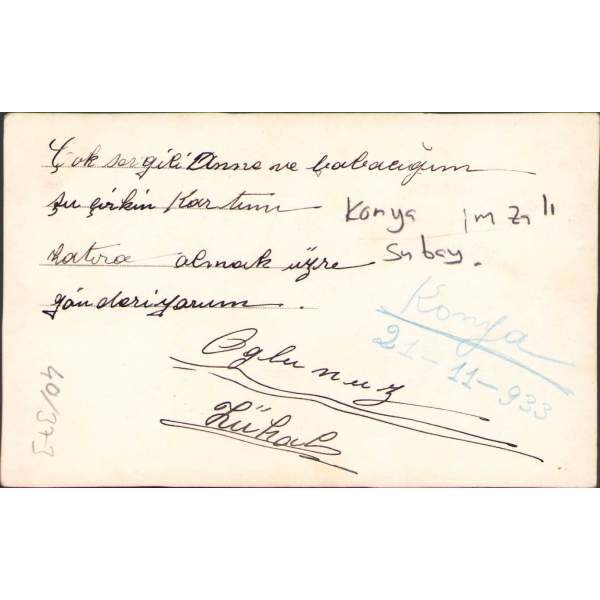 Çok sevgili Anne ve babacığım
şu çirkin Kartımı
hatıra almak üzre
gönderiyorum.
Konya imzalı
Subay.
Konya
21-11-933
Oğlunuz
40/373